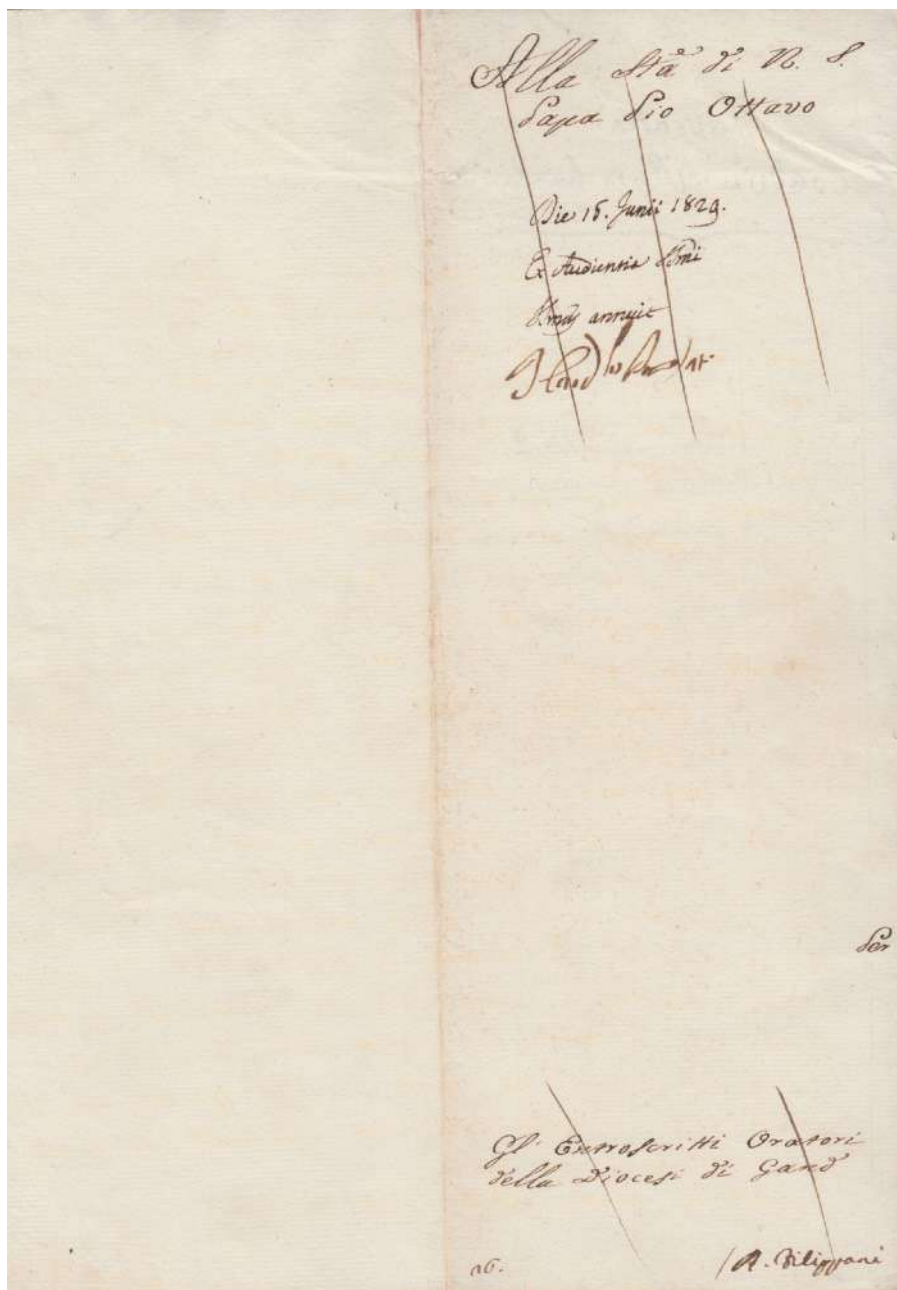 Alla Stà di N. S.
Papa Pio Ottavo
Die 15. Junii 1829.
Ex Audientia SSmi
SSmus annuit
Per
Gl' Entroscritti Oratori
della Diocesi di Gand
16.
/ A. Filippani